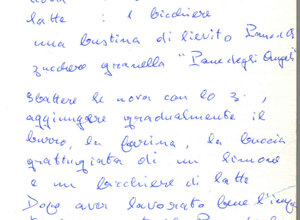 latte : 1 bicchiere
una bustina di lievito Pane d
zucchero granella "Pane degli Angeli"
sbattere le uova con lo z.,
aggiungere gradualmente il
burro, la farina, la buccia
grattugiata di un limone
e un bicchiere di latte
Dopo aver lavorato bene l'im